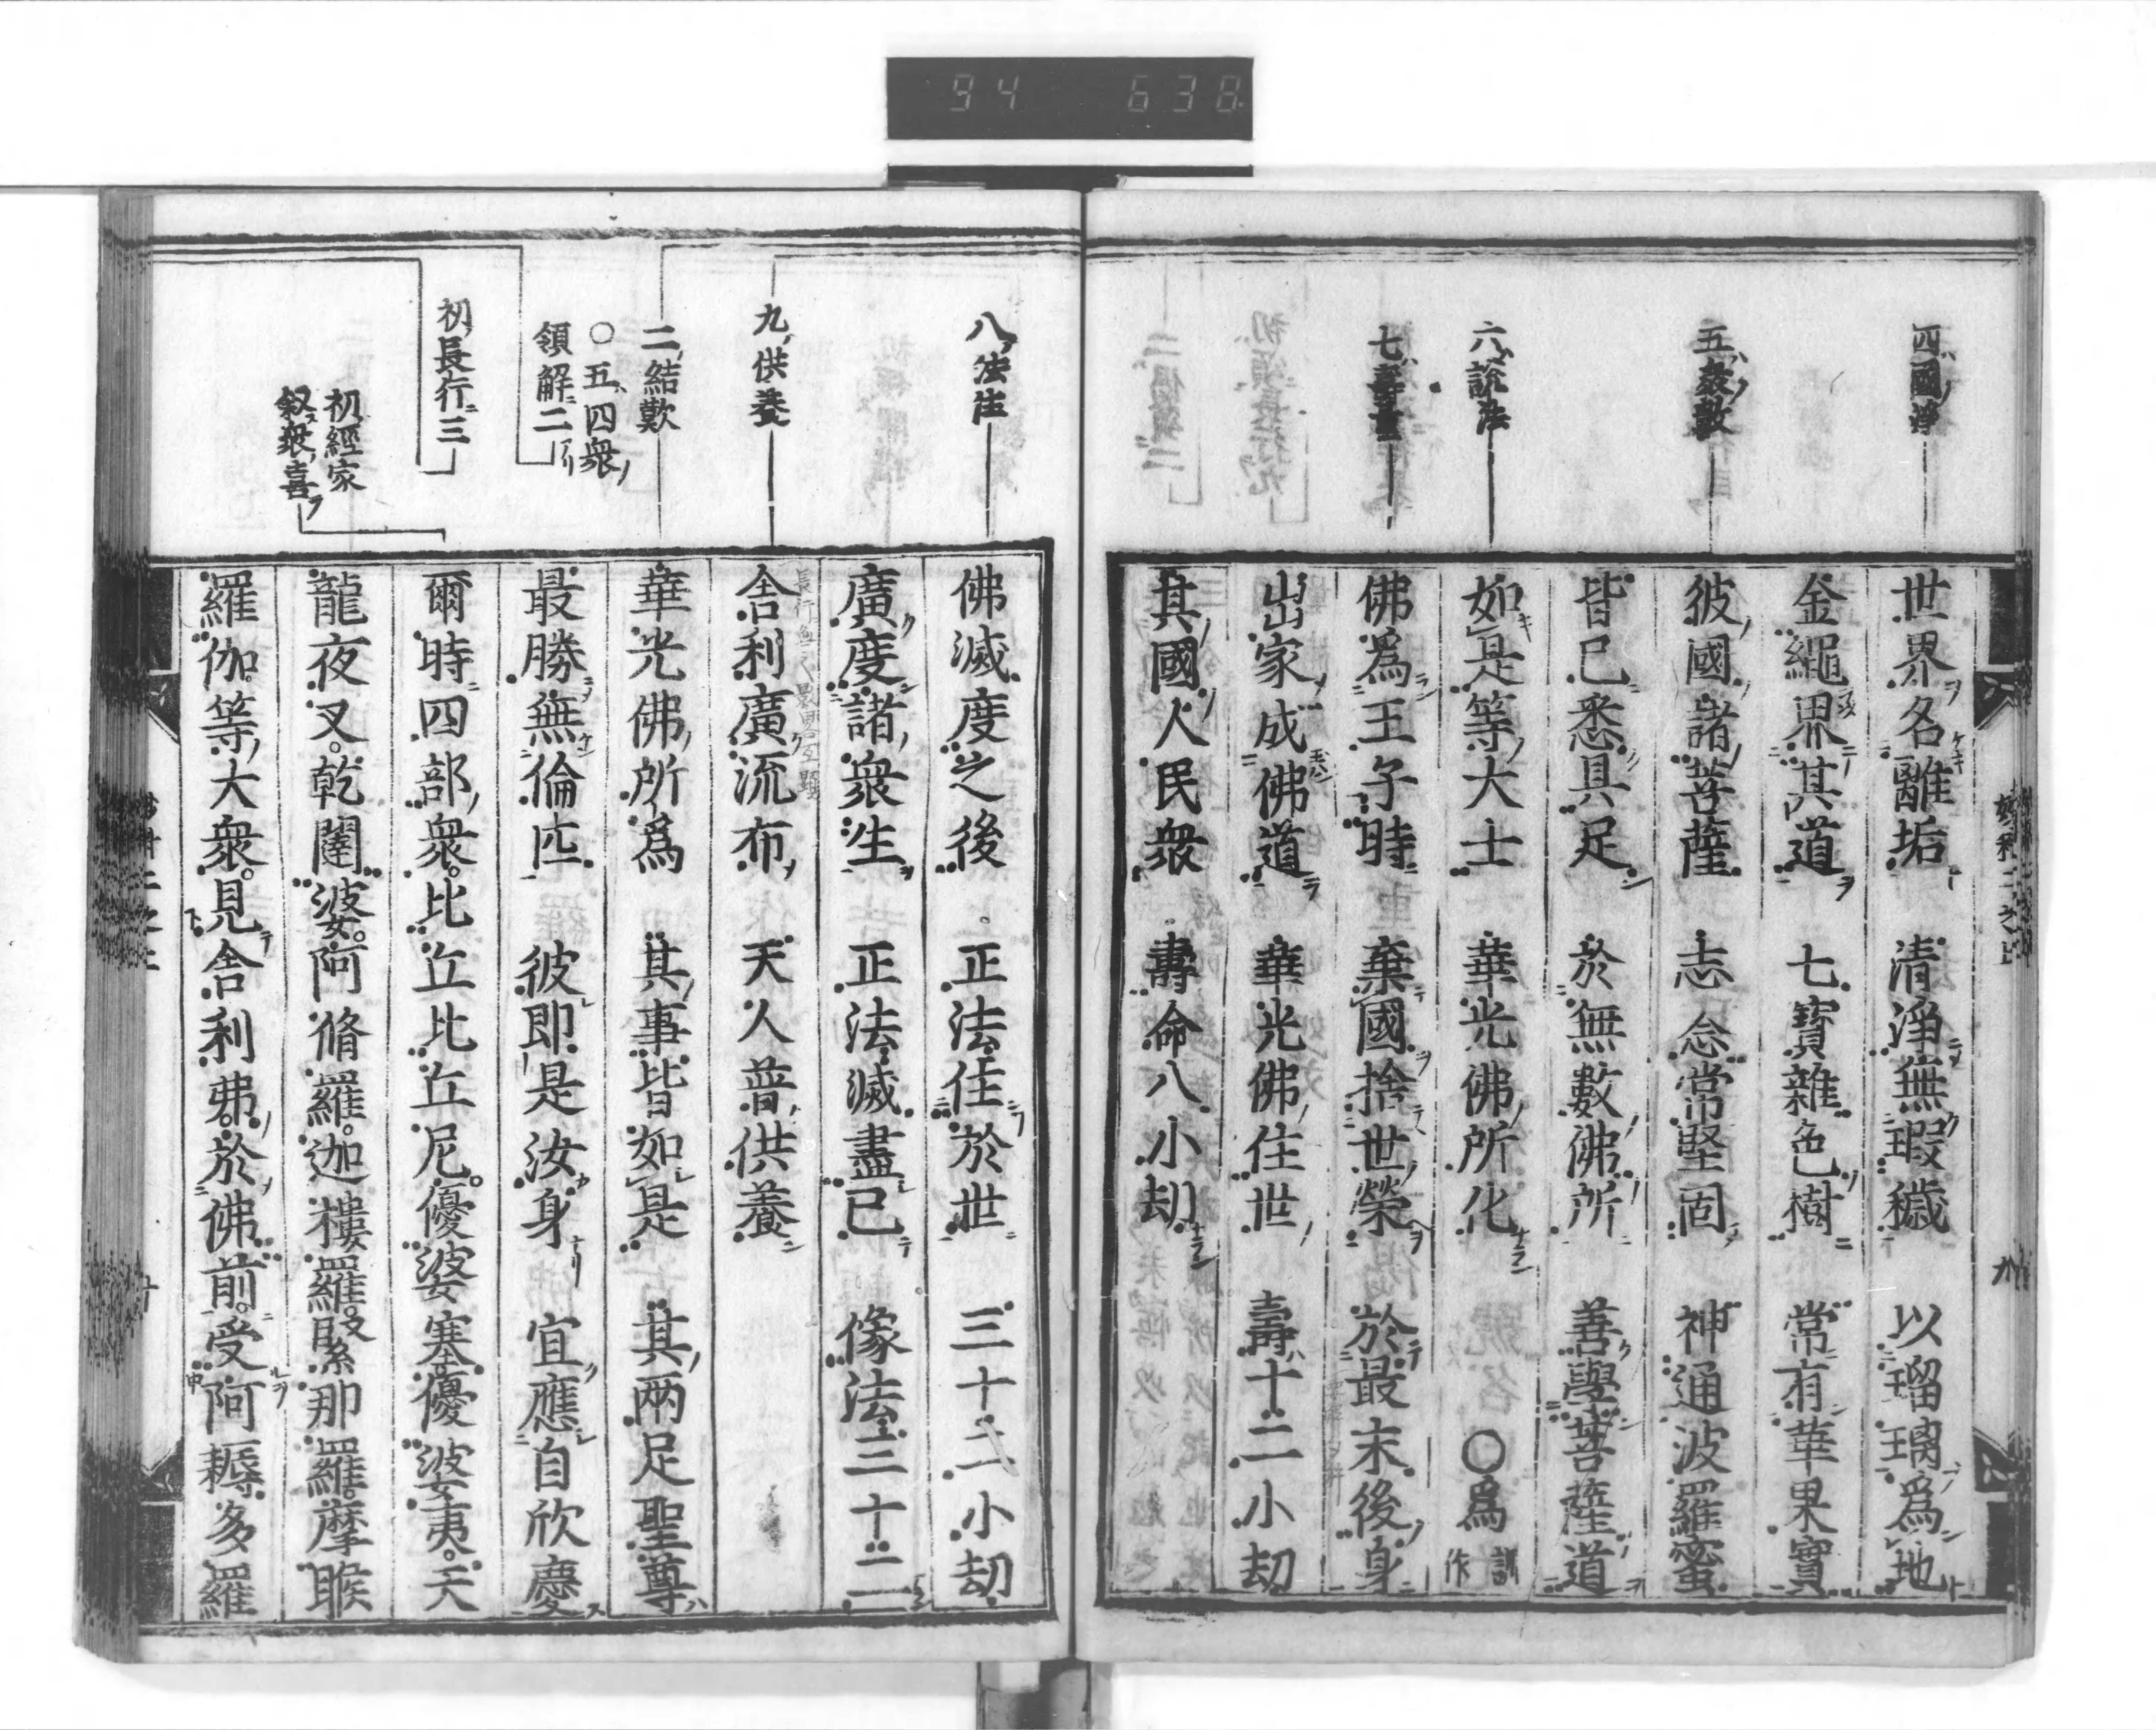 94 638
四國淨
五衆數
六說法
七壽量
世界名離垢 清淨無瑕穢 以瑠璃爲地
金繩界其道 七寶雜色樹 常有華果實
彼國諸菩薩 志念常堅固 神通波羅蜜
皆已悉具足 於無數佛所 善學菩薩道
如是等大士 華光佛所化 ○爲訓作
佛爲王子時 棄國捨世榮 於最末後身
出家成佛道 華光佛住世 壽十二小劫
其國人民衆 壽命八小劫
八法住
九供養
二結歎
○五四衆
領解二
初長行三
初經家
叙衆喜
佛滅度之後 正法住於世 三十二小劫
廣度諸衆生 正法滅盡已 像法三十二
舍利廣流布 天人普供養
華光佛所爲 其事皆如是 其兩足聖尊
最勝無倫匹 彼即是汝身 宜應自欣慶
爾時四部衆比丘比丘尼優婆塞優婆夷天
龍夜叉乾闥婆阿脩羅迦樓羅緊那羅摩睺
羅伽等大衆見舍利弗於佛前受阿耨多羅